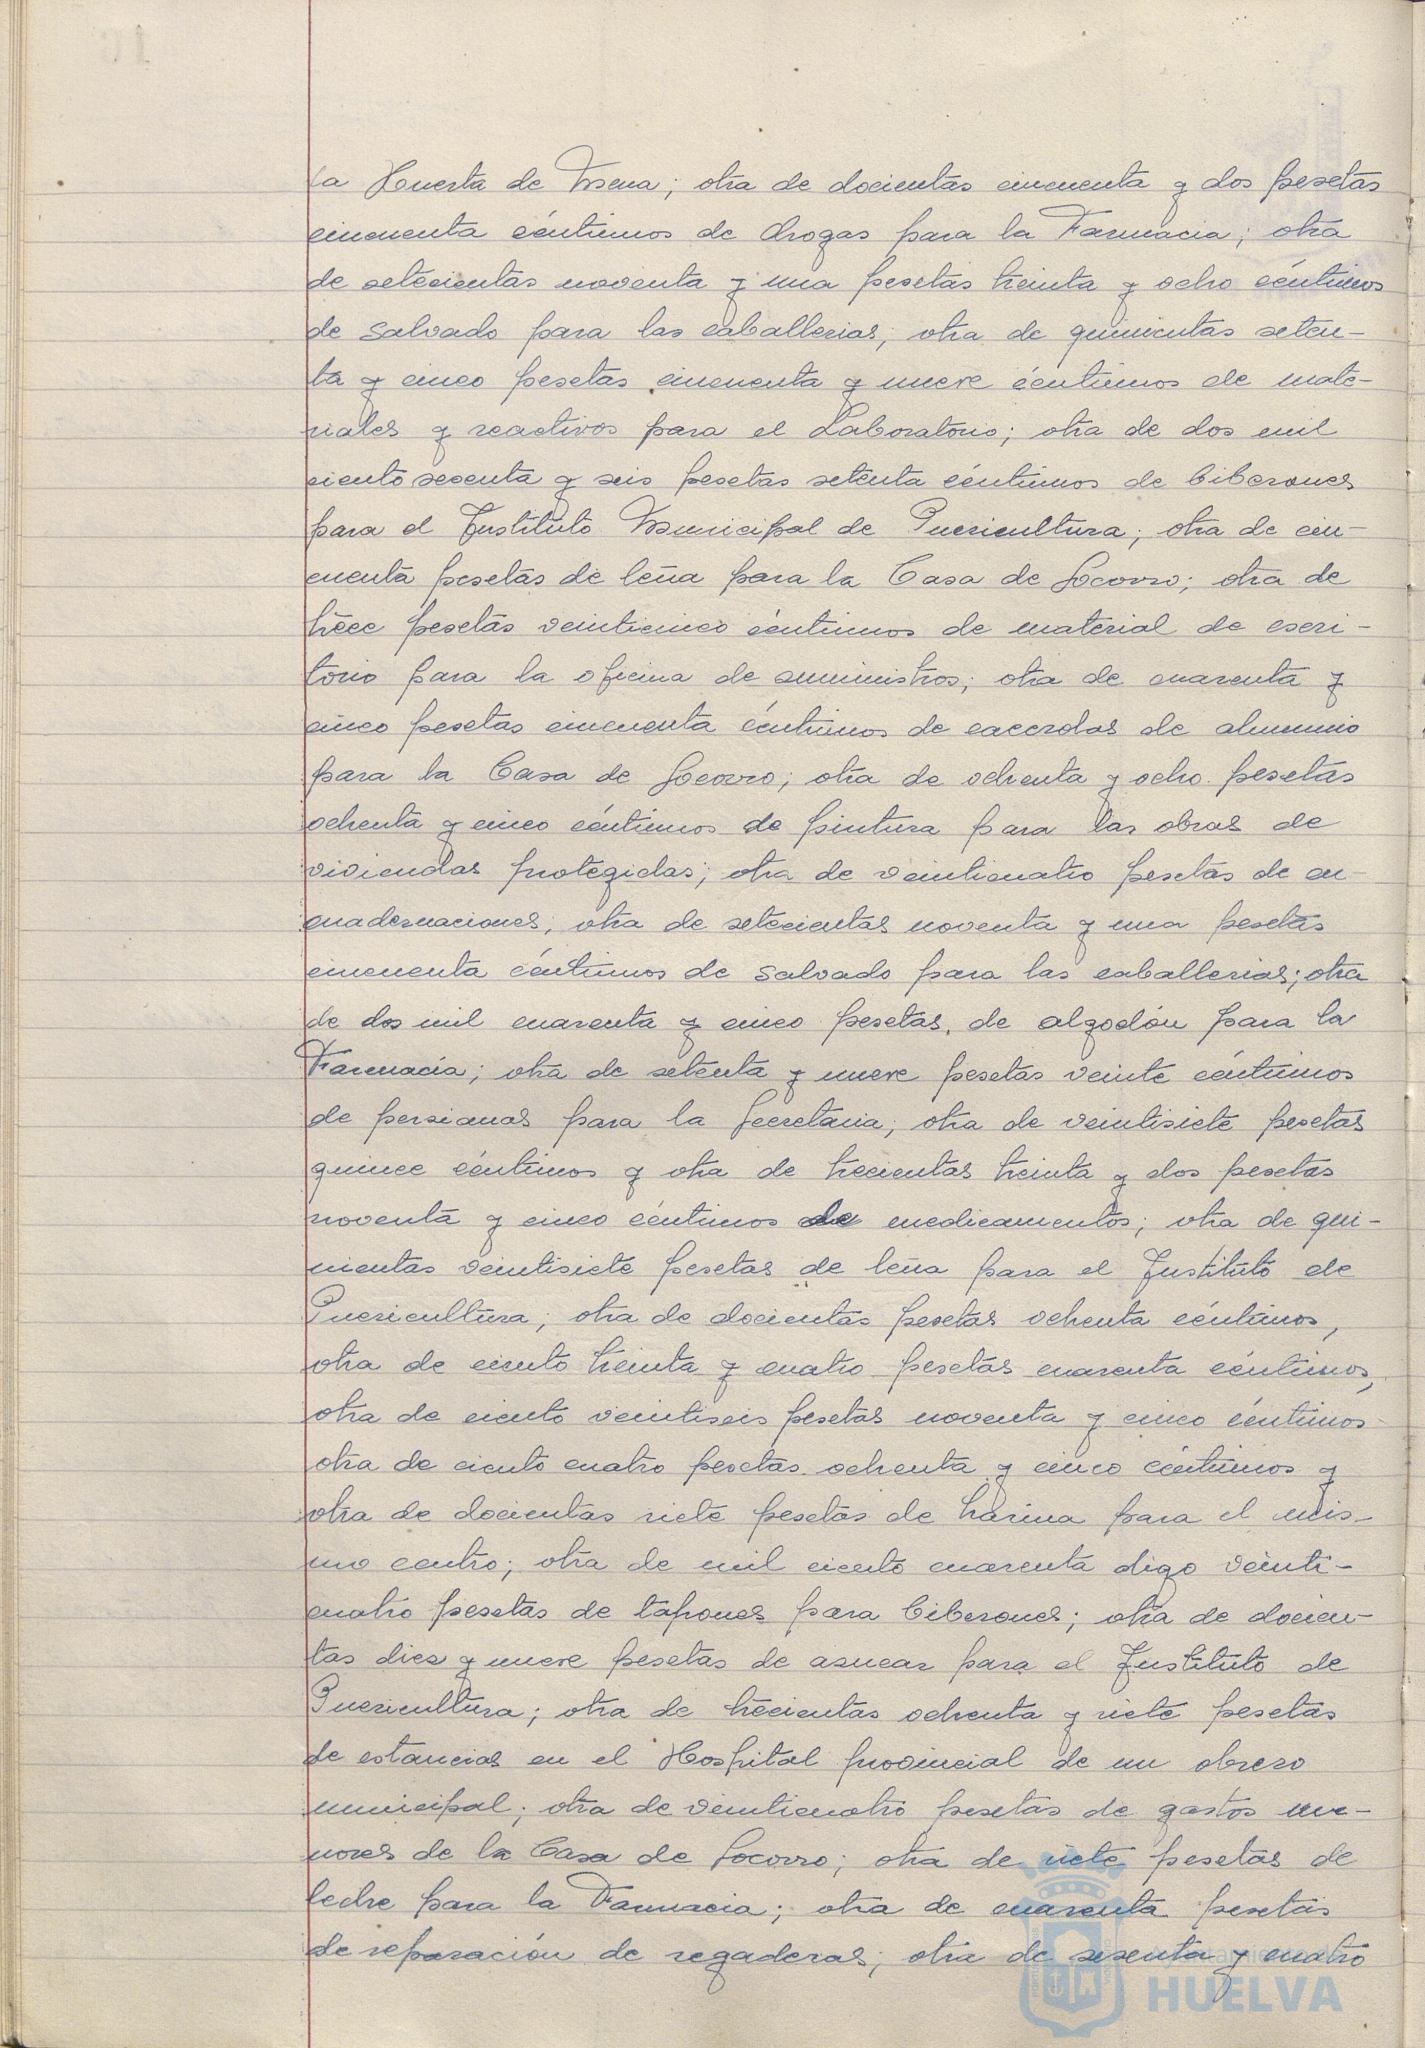 la Huerta de Mena; otra de docientas cincuenta y dos pesetas
cincuenta céntimos de drogas para la Farmacia; otra
de setecientas noventa y una pesetas treinta y ocho céntimos
de salvado para las caballerias; otra de quinientas seten-
ta y cinco pesetas cincuenta y nueve céntimos de mate-
riales y reactivos para el Laboratorio; otra de dos mil
ciento sesenta y seis pesetas setenta céntimos de biberones
para el Instituto Municipal de Puericultura; otra de cin-
cuenta pesetas de leña para la Casa de Socorro; otra de
trece pesetas veinticinco céntimos de material de escri-
torio para la oficina de suministros; otra de cuarenta y
cinco pesetas cincuenta céntimos de cacerolas de aluminio
para la Casa de Socorro; otra de ochenta y ocho pesetas
ochenta y cinco céntimos de pintura para las obras de
viviendas protegidas; otra de veinticuatro pesetas de en-
cuadernaciones; otra de setecientas noventa y una pesetas
cincuenta céntimos de salvado para las caballerias; otra
de dos mil cuarenta y cinco pesetas, de algodón para la
Farmacia; otra de setenta y nueve pesetas veinte céntimos
de persianas para la Secretaria; otra de veintisiete pesetas
quince céntimos y otra de trecientas treinta y dos pesetas
noventa y cinco céntimos de medicamentos; otra de qui-
nientas veintisiete pesetas de leña para el Instituto de
Puericultura; otra de docientas pesetas ochenta céntimos,
otra de ciento treinta y cuatro pesetas cuarenta céntimos,
otra de ciento veintiseis pesetas noventa y cinco céntimos
otra de ciento cuatro pesetas ochenta y cinco céntimos y
otra de docientas siete pesetas de harina para el mis-
mo centro; otra de mil ciento cuarenta digo veinti-
cuatro pesetas de tapones para biberones; otra de docien-
tas diez y nueve pesetas de azucar para el Instituto de
Puericultura; otra de trecientas ochenta y siete pesetas
de estancias en el Hospital provincial de un obrero
municipal; otra de veinticuatro pesetas de gastos me-
nores de la Casa de Socorro; otra de siete pesetas de
leche para la Farmacia; otra de cuarenta pesetas
de reparación de regaderas; otra de sesenta y cuatro
HUELVA